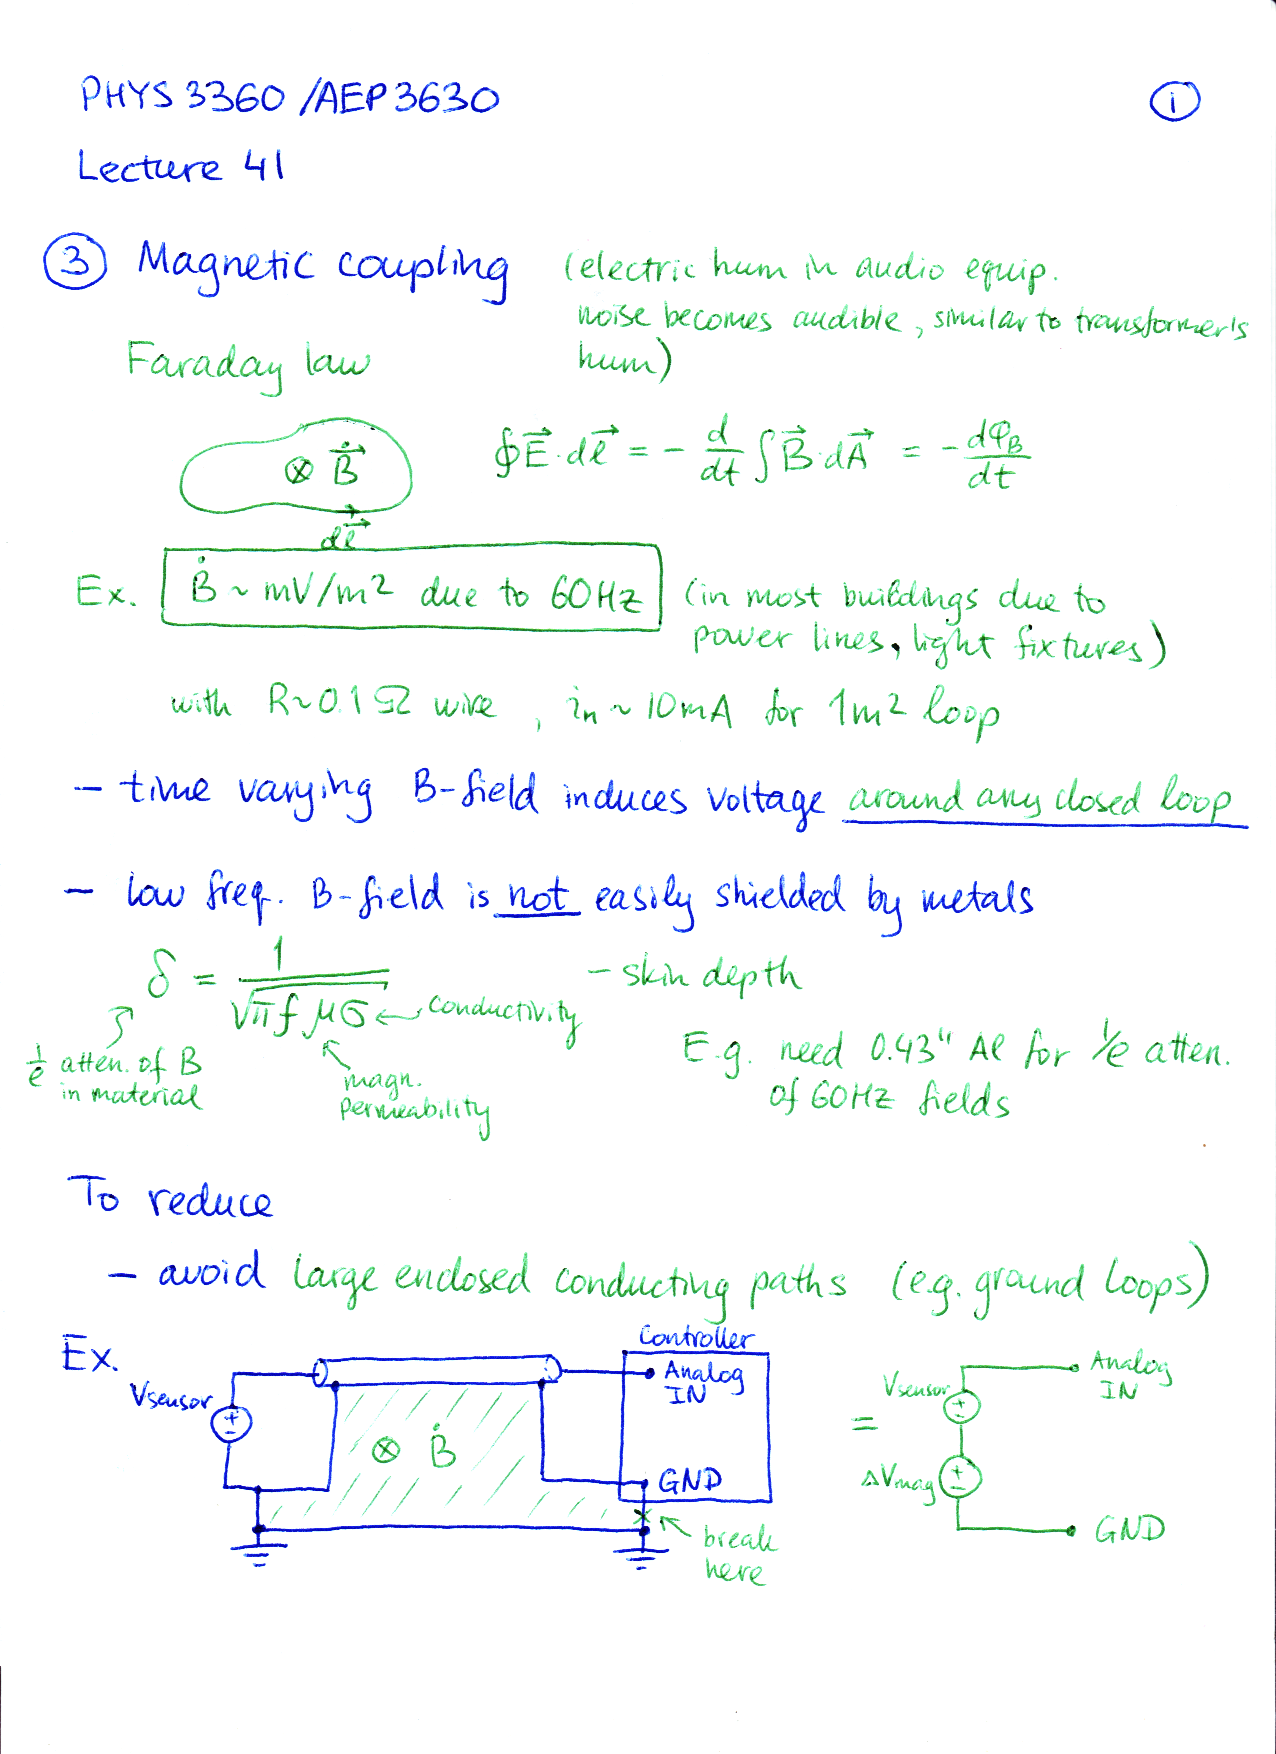 PHYS 3360 /AEP 3630
i
Lecture 41
③ Magnetic coupling (electric hum in audio equip.
noise becomes audible, similar to transformer's
hum)
Faraday law
⊗ \dot{\vec{B}}
d\vec{l}
∮\vec{E}·d\vec{l} = - \frac{d}{dt} ∫\vec{B}·d\vec{A} = - \frac{dφ_B}{dt}
Ex. \dot{B} ~ mV/m² due to 60Hz (in most buildings due to
power lines, light fixtures)
with R~0.1Ω wire, in ~ 10mA for 1m² loop
- time varying B-field induces voltage around any closed loop
- low freq. B-field is not easily shielded by metals
δ = \frac{1}{\sqrt{πfμσ}} ← conductivity
- skin depth
1/e atten. of B
in material
magn.
permeability
E.g. need 0.43" Al for 1/e atten.
of 60Hz fields
To reduce
- avoid large enclosed conducting paths (e.g. ground loops)
Ex.
Controller
Vsensor
+
−
Analog
IN
⊗ \dot{B}
GND
break
here
=
Vsensor
+
−
Analog
IN
ΔVmag
+
−
GND